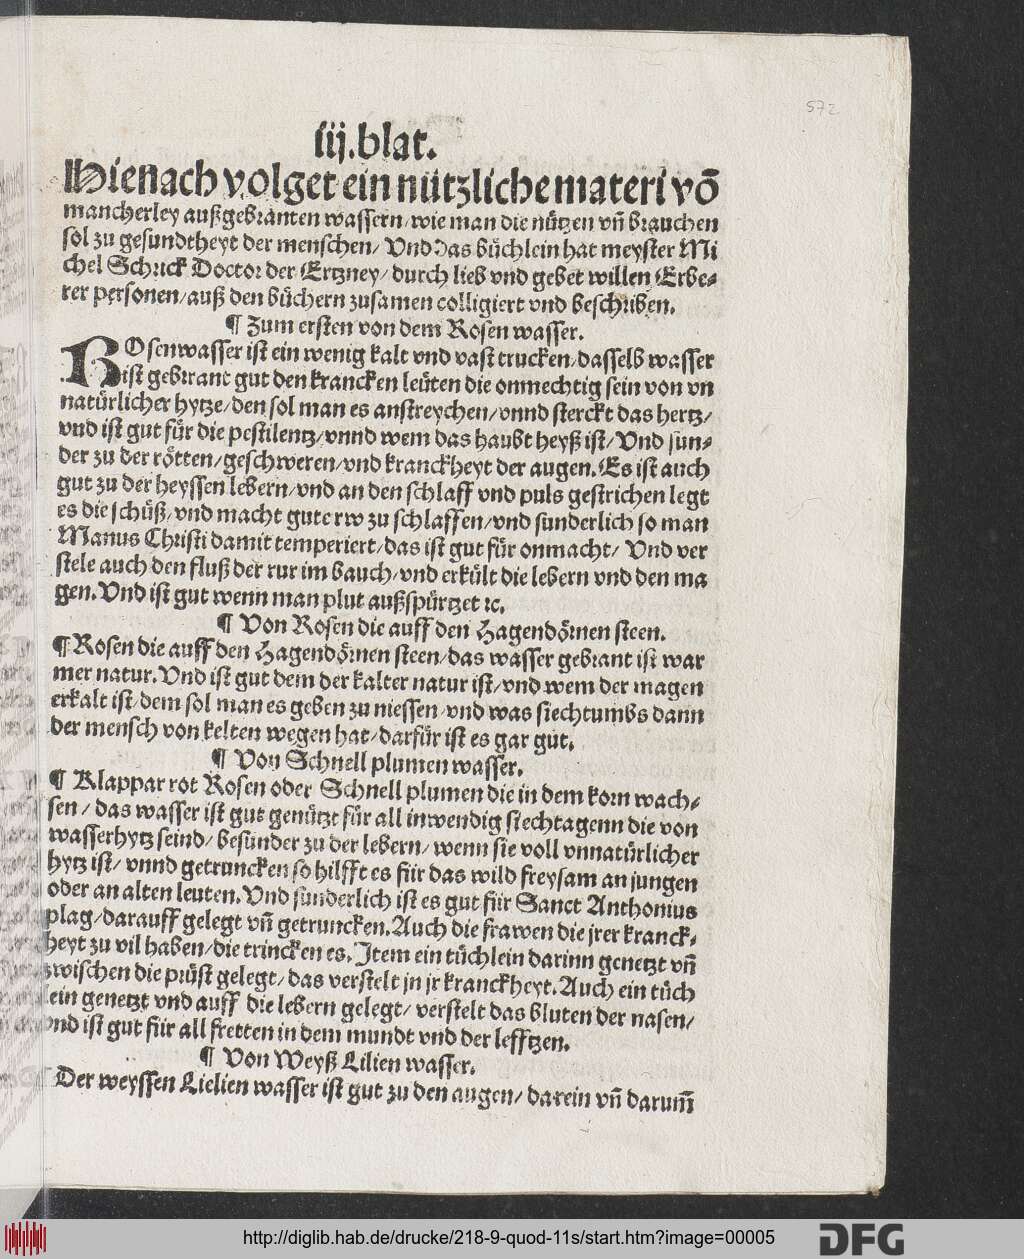 572
iij.blat.
Hienach volget ein nützliche materi võ
mancherley außgebranten wassern/wie man die nützen vñ brauchen
sol zu gesundtheyt der menschen/ Vnd das büchlein hat meyster Mi
chel Schrick Doctor der Ertzney/durch lieb vnd gebet willen Erbe⸗
rer personen/auß den büchern zusamen colligiert vnd beschriben.
¶ Zum ersten von dem Rosen wasser.
ROsenwasser ist ein wenig kalt vnd vast trucken/dasselb wasser
ist gebrant gut den krancken leüten die onmechtig sein von vn
natürlicher hytze/den sol man es anstreychen/vnnd sterckt das hertz/
vnd ist gut für die pestilentz/vnnd wem das haubt heyß ist/ Vnd sun⸗
der zu der rötten/geschweren/vnd kranckheyt der augen. Es ist auch
gut zu der heyssen lebern/vnd an den schlaff vnd puls gestrichen legt
es die schüß/vnd macht gute rw zu schlaffen/vnd sunderlich so man
Manus Christi damit temperiert/das ist gut für onmacht/ Vnd ver
stele auch den fluß der rur im bauch/vnd erkült die lebern vnd den ma
gen. Vnd ist gut wenn man plut außspürtzet ꝛc.
¶ Von Rosen die auff den Hagendörnen steen.
¶ Rosen die auff den Hagendörnen steen/das wasser gebrant ist war
mer natur. Vnd ist gut dem der kalter natur ist/vnd wem der magen
erkalt ist/dem sol man es geben zu niessen/vnd was siechtumbs dann
der mensch von kelten wegen hat/darfür ist es gar gut.
¶ Von Schnell plumen wasser.
¶ Klappar rot Rosen oder Schnell plumen die in dem korn wach⸗
sen/ das wasser ist gut genützt für all inwendig siechtagenn die von
wasserhytz seind/ besunder zu der lebern/ wenn sie voll vnnatürlicher
hytz ist/ vnnd getruncken so hilfft es für das wild freysam an jungen
oder an alten leuten. Vnd sunderlich ist es gut für Sanct Anthonius
plag/darauff gelegt vñ getruncken. Auch die frawen die jrer kranck⸗
heyt zu vil haben/die trincken es. Jtem ein tüchlein darinn genetzt vñ
zwischen die prüst gelegt/ das verstelt jn jr kranckheyt. Auch ein tüch
lein genetzt vnd auff die lebern gelegt/ verstelt das bluten der nasen/
vnd ist gut für all fretten in dem mundt vnd der lefftzen.
¶ Von Weyß Lilien wasser.
Der weyssen Lielien wasser ist gut zu den augen/ darein vñ darum̃
http://diglib.hab.de/drucke/218-9-quod-11s/start.htm?image=00005
DFG